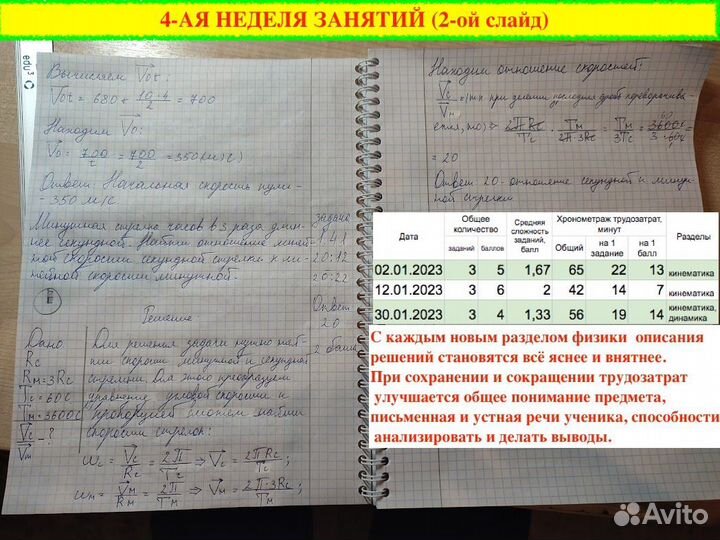 4-АЯ НЕДЕЛЯ ЗАНЯТИЙ (2-ой слайд)
Вычисляем V⃗ot:
V⃗ot = 680 + 10·4/2 = 700
Находим V⃗o:
V⃗o = 700/t = 700/2 = 350 (м/с)
Ответ: Начальная скорость пули -
- 350 м/с.
Минутная стрелка часов в 3 раза длин-
нее секундной. Найти отношение линей-
ной скорости секундной стрелки к ли-
нейной скорости минутной.
задача
1.41
20:12
20:22
Ответ
20
2 балла
Решение
Дано
Rc
Rм=3Rc
Tc=60c
Tм=3600c
V⃗c/V⃗м - ?
Для решения задачи нужно най-
ти скорости минутной и секундной
стрелки. Для этого преобразуем
уравнение угловой скорости и
пропорцией сможем найти
скорости стрелок:
ωc = V⃗c/Rc = 2П/Tc ⇒ V⃗c = 2ПRc/Tc;
ωм = V⃗м/Rм = 2П/Tм ⇒ V⃗м = 2П·3Rc/Tм;
Находим отношение скоростей:
V⃗c/V⃗м при делении последняя дробь переворачива-
ется, то) ⇒ 2ПRc/Tc · Tм/2П3Rc = Tм/3Tc = 3600c/3·60c =
= 20
Ответ: 20 - отношение секундной к минут-
ной стрелки
Дата
Общее количество
заданий
баллов
Средняя сложность заданий, балл
Хронометраж трудозатрат, минут
Общий
на 1 задание
на 1 балл
Разделы
02.01.2023 3 5 1,67 65 22 13 кинематика
12.01.2023 3 6 2 42 14 7 кинематика
30.01.2023 3 4 1,33 56 19 14 кинематика, динамика
С каждым новым разделом физики описания
решений становятся всё яснее и внятнее.
При сохранении и сокращении трудозатрат
улучшается общее понимание предмета,
письменная и устная речи ученика, способности
анализировать и делать выводы.
Avito